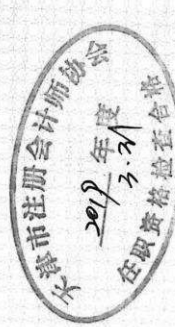 天津市注册会计师协会
2019 年度
3.21
任职资格检查合格